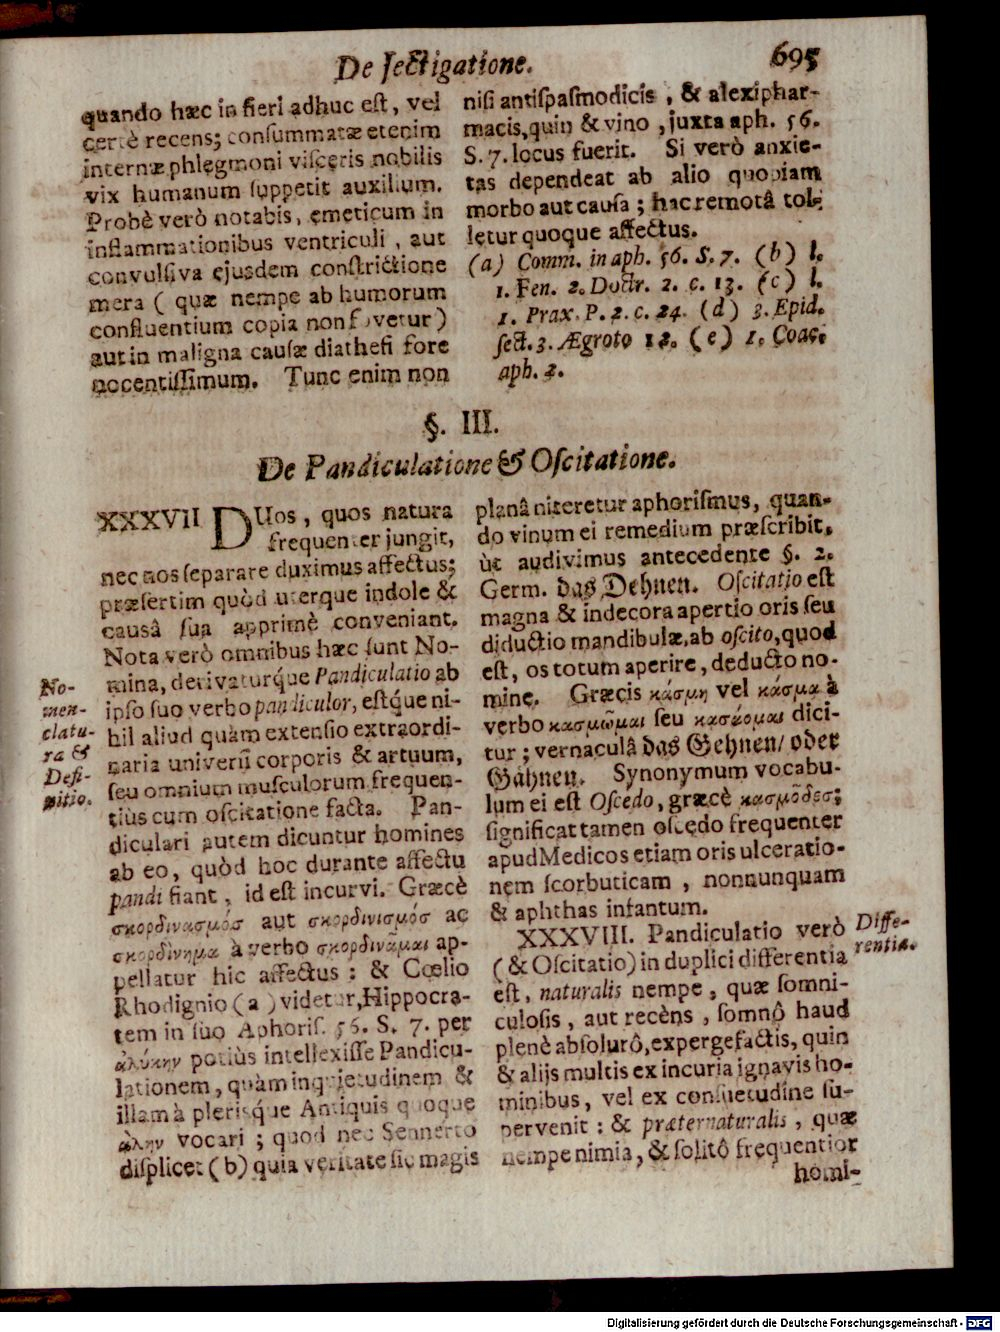 De Jectigatione. 695
quando hæc in fieri adhuc est, vel
certè recens; consummatæ etenim
internæ phlegmoni visceris nobilis
vix humanum suppetit auxilium.
Probè verò notabis, emeticum in
inflammationibus ventriculi, aut
convulsiva ejusdem constrictione
mera ( quæ nempe ab humorum
confluentium copia non fovetur )
aut in maligna causæ diathesi fore
nocentissimum. Tunc enim non
nisi antispasmodicis, & alexiphar-
macis, quin & vino, juxta aph. 56.
S. 7. locus fuerit. Si verò anxie-
tas dependeat ab alio quopiam
morbo aut causa; hac remotâ tol-
letur quoque affectus.
(a) Comm. in aph. 56. S. 7. (b) l.
1. Fen. 2. Doctr. 2. c. 13. (c) l.
1. Prax. P. 2. c. 24. (d) 3. Epid.
sect. 3. Ægroto 12. (e) 1. Coac.
aph. 2.
§. III.
De Pandiculatione & Oscitatione.
XXXVII DUos, quos natura
frequenter jungit,
nec nos separare duximus affectus;
præsertim quòd uterque indole &
causâ sua apprimè conveniant.
Nota verò omnibus hæc sunt No-
mina, derivaturq́ue Pandiculatio ab
ipso suo verbo pandiculor, estq́ue ni-
hil aliud quàm extensio extraordi-
naria universi corporis & artuum,
seu omnium musculorum frequen-
tiùs cum oscitatione facta. Pan-
diculari autem dicuntur homines
ab eo, quòd hoc durante affectu
pandi fiant, id est incurvi. Græcè
σκορδινασμός aut σκορδινισμός ac
σκορδίνημα à verbo σκορδινᾶμαι ap-
pellatur hic affectus: & Cœlio
Rhodignio (a) videtur, Hippocra-
tem in suo Aphoris. 56. S. 7. per
ἀλύκην potiùs intellexisse Pandicu-
lationem, quàm inquietudinem &
illam à plerisq́ue Antiquis quoque
ἀλην vocari; quod nec Sennerto
displicet (b) quia veritate sic magis
No-
men-
clatu-
ra &
Defi-
nitio.
planâ niteretur aphorismus, quan-
do vinum ei remedium præscribit,
ùt audivimus antecedente §. 2.
Germ. das Dehnen. Oscitatio est
magna & indecora apertio oris seu
diductio mandibulæ, ab oscito, quod
est, os totum aperire, deducto no-
mine. Græcis κάσμη vel κάσμα à
verbo κασμῶμαι seu κασάομαι dici-
tur; vernaculâ das Gehnen/ oder
Gähnen. Synonymum vocabu-
lum ei est Oscedo, græcè κασμῶδες;
significat tamen oscedo frequenter
apud Medicos etiam oris ulceratio-
nem scorbuticam, nonnunquam
& aphthas infantum.
XXXVIII. Pandiculatio verò
(& Oscitatio) in duplici differentia
est, naturalis nempe, quæ somni-
culosis, aut recèns, somnô haud
plenè absolutô, expergefactis, quin
& alijs multis ex incuria ignavis ho-
minibus, vel ex consuetudine su-
pervenit: & præternaturalis, quæ
nempe nimia, & solitô frequentior
homi-
Diffe-
rentiæ.
Digitalisierung gefördert durch die Deutsche Forschungsgemeinschaft - DFG